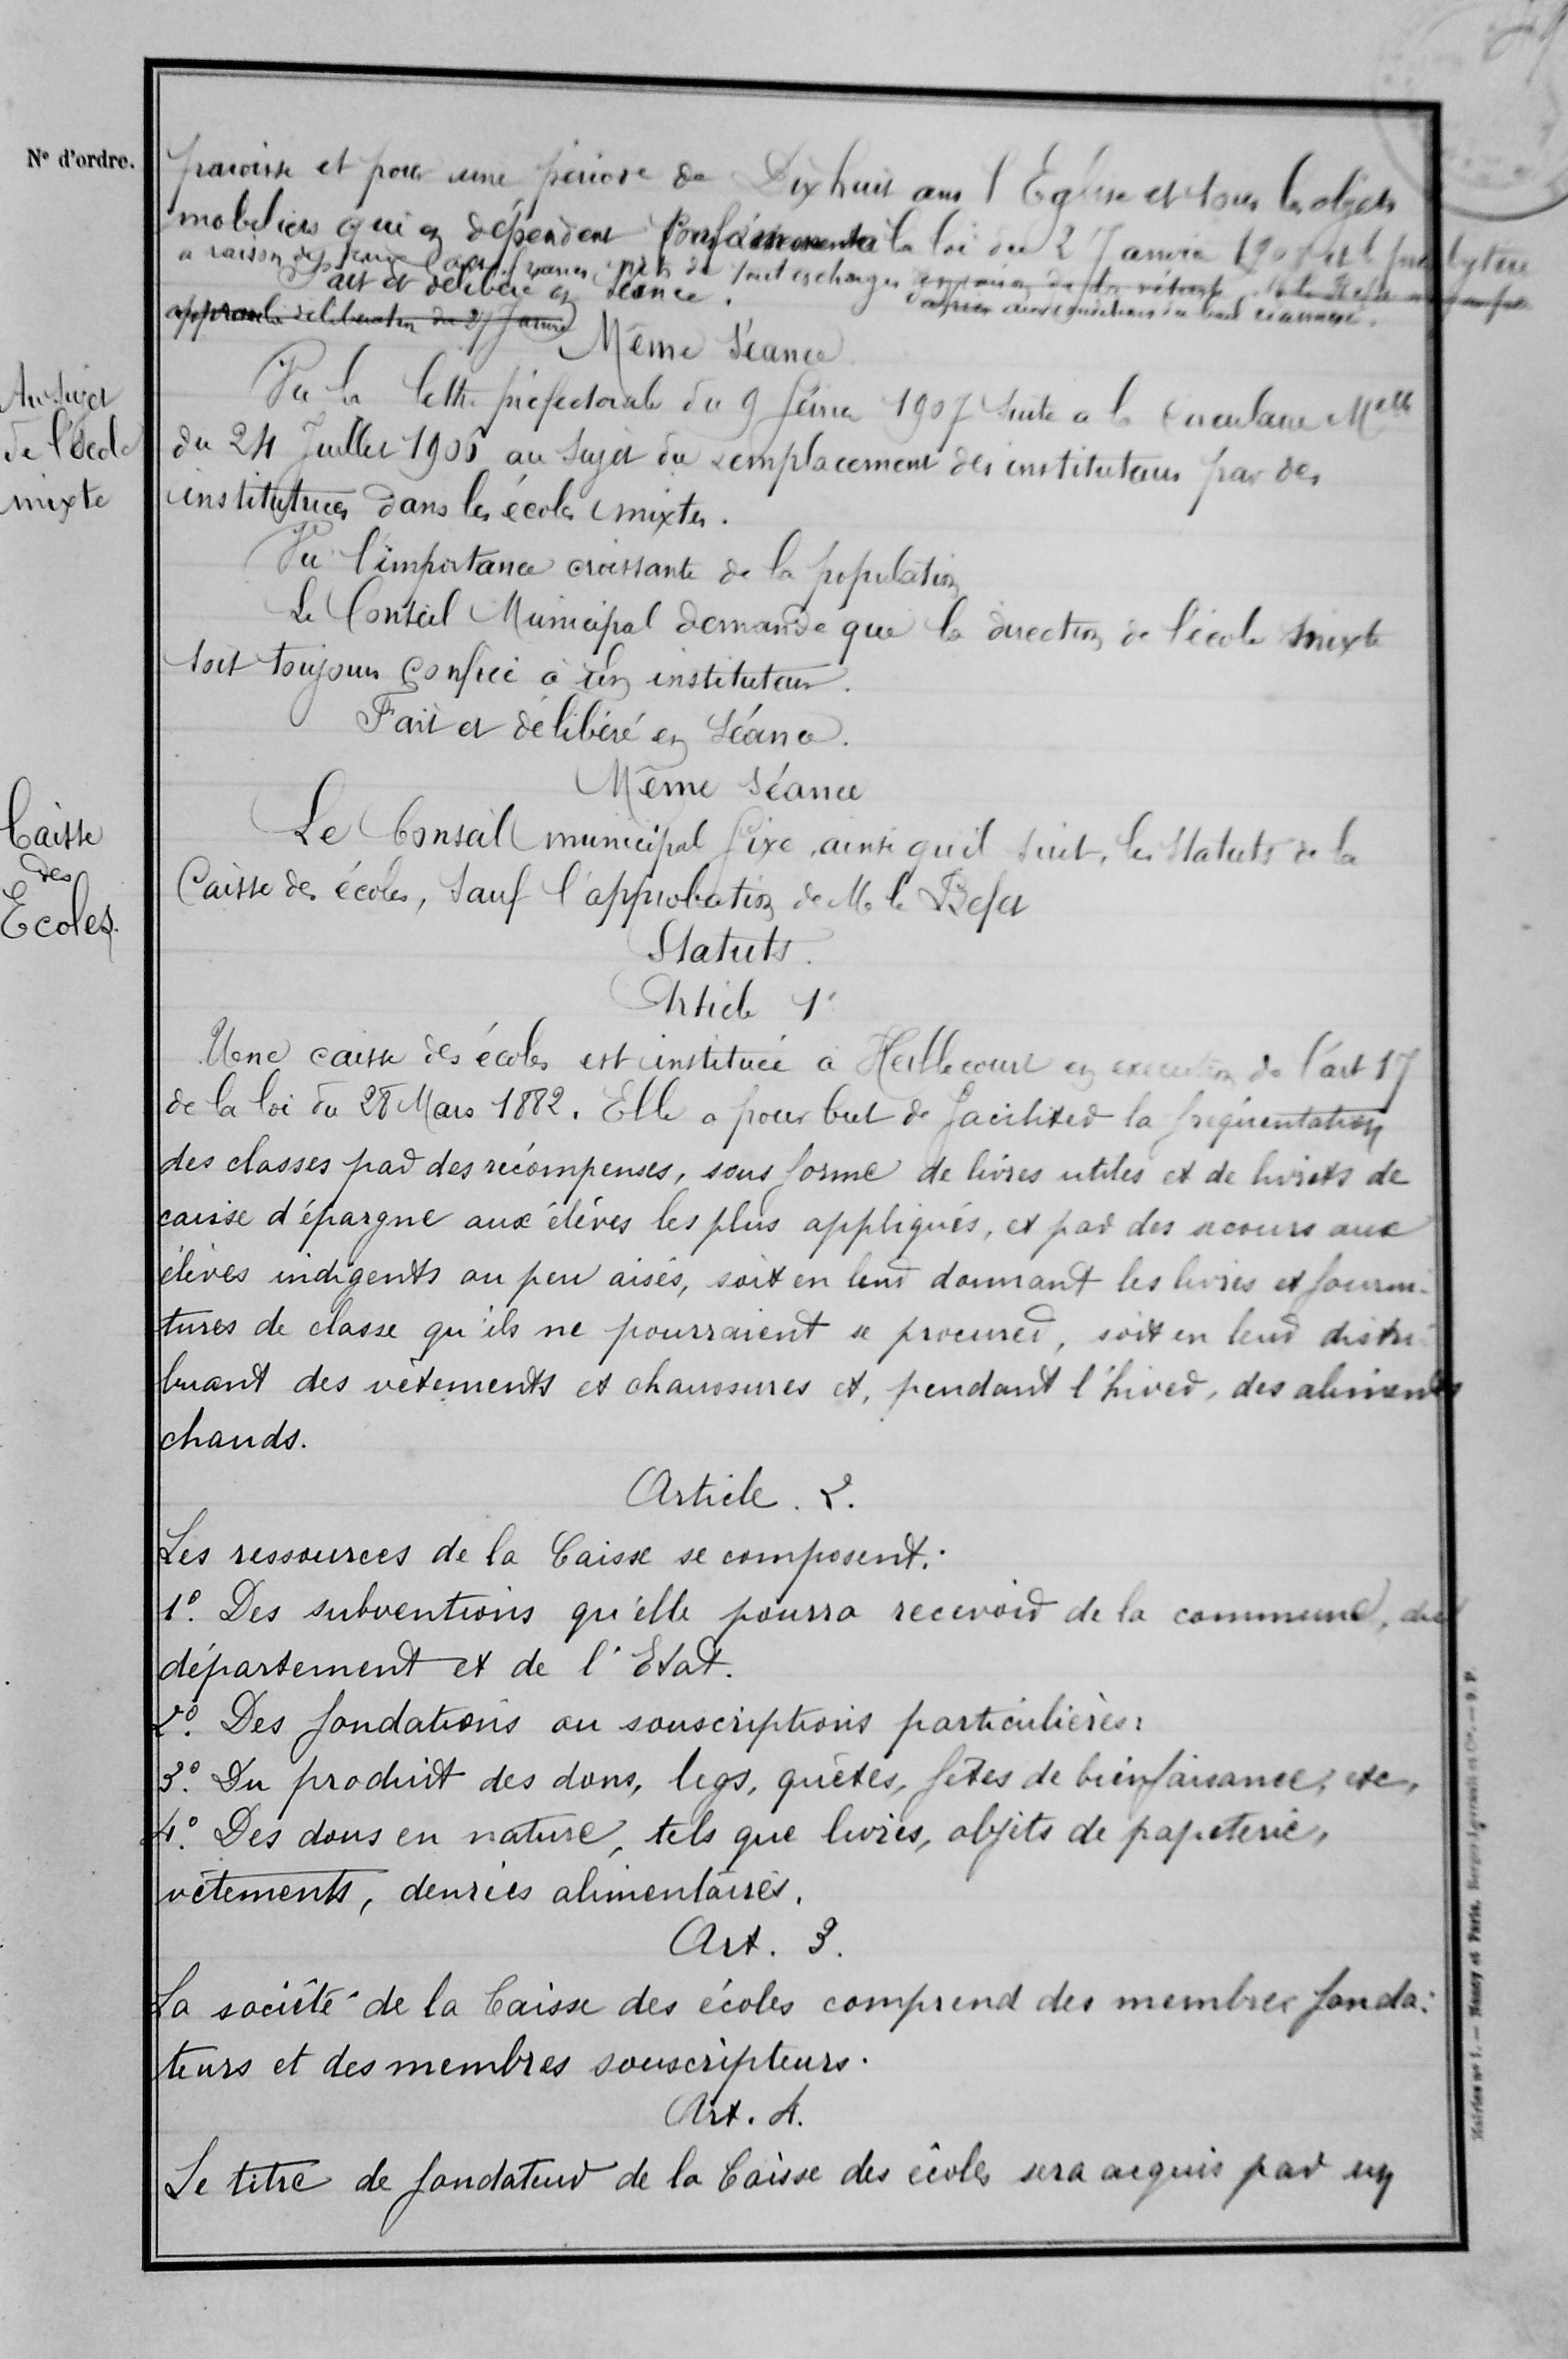 N° d'ordre.
paroisse et pour une période de Dix huit ans l'Eglise et tous les objets
mobiliers qui en dépendent Conformément à la loi du 2 Janvier 1907 et le presbytère
a raison de francs nets de tout es charges
Fait et délibéré en séance.
approuve la deliberation du 27 Janvier
Même Séance
Au Sujet
de l'école
mixte
Vu la lettre préfectorale du 9 février 1907 suite a la Circulaire Melle
du 24 Juillet 1906 au sujet du remplacement des instituteurs par des
institutrices dans les écoles mixtes.
Vu l'importance croissante de la population
Le Conseil Municipal demande que la direction de l'école mixte
soit toujours confiée à un instituteur.
Fait et délibéré en séance.
Même séance
Caisse
des
Ecoles.
Le Conseil municipal fixe, ainsi qu'il suit, les Statuts de la
Caisse des écoles, sauf l'approbation de M le Préfet
Statuts.
Article 1'
Une caisse des écoles est instituée à Heillecourt en execution de l'art 17
de la loi du 28 Mars 1882. Elle a pour but de faciliter la fréquentation
des classes par des récompenses, sous forme de livres utiles et de livrets de
caisse d'épargne aux élèves les plus appliqués, et par des secours aux
élèves indigents ou peu aisés, soit en leur donnant les livres et fourni-
tures de classe qu'ils ne pourraient se procurer, soit en leur distri-
buant des vêtements et chaussures et, pendant l'hiver, des aliments
chauds.
Article. 2.
Les ressources de la Caisse se composent:
1°. Des subventions qu'elle pourra recevoir de la commune, du
département et de l'Etat.
2°. Des fondations ou souscriptions particulières:
3°. Du produit des dons, legs, quêtes, fêtes de bienfaisance, etc,
4°. Des dons en nature, tels que livres, objets de papeterie,
vêtements, denrées alimentaires.
Art. 3.
La société de la Caisse des écoles comprend des membres fonda-
teurs et des membres souscripteurs.
Art. 4.
Le titre de fondateur de la Caisse des écoles sera acquis par un
Mairies n° 1. — Nancy et Paris. Berger-Levrault et Cie. — 9. P.